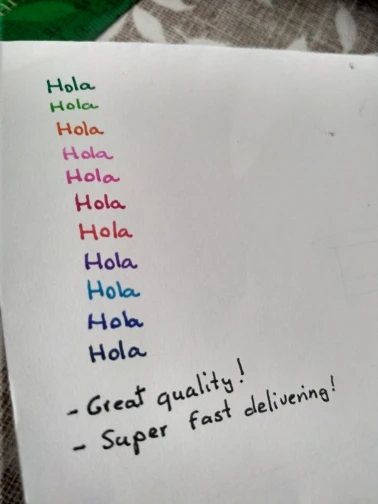 Hola
Hola
Hola
Hola
Hola
Hola
Hola
Hola
Hola
Hola
Hola
- Great quality!
- Super fast delivering!